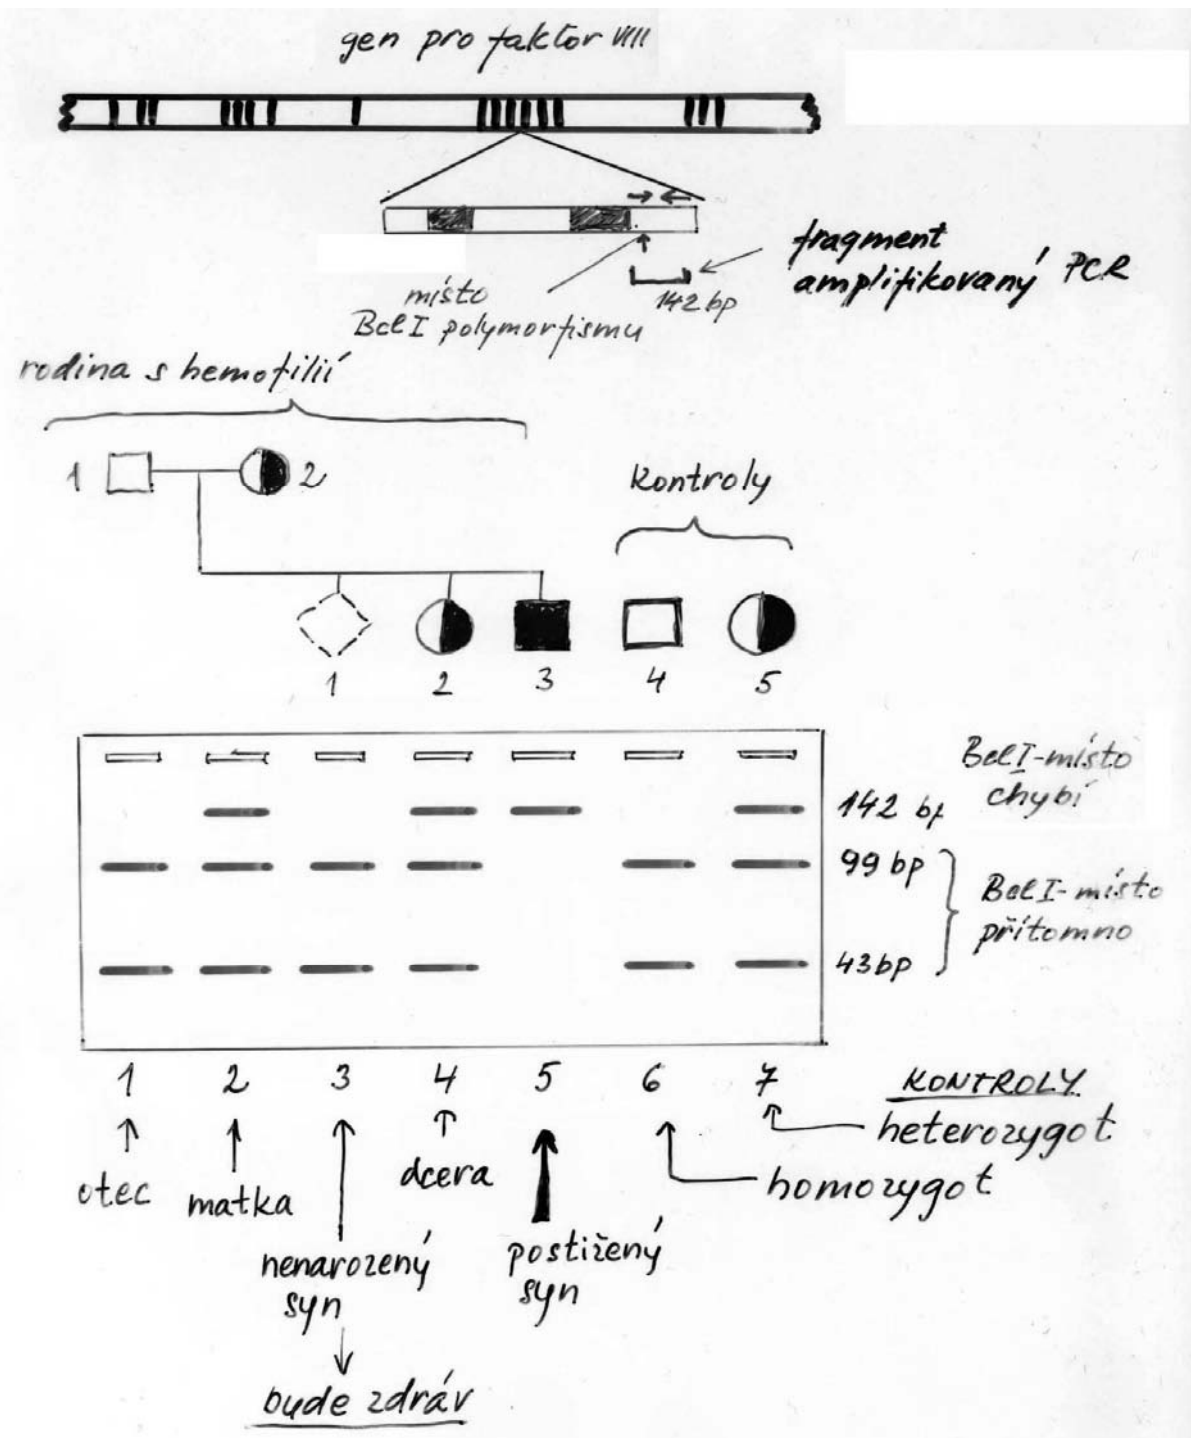 gen pro faktor VIII
fragment
amplifikovaný PCR
místo
BclI polymorfismu
142 bp
rodina s hemofilií
1
2
kontroly
1 2 3 4 5
BclI-místo
chybí
142 bp
99 bp
BclI-místo
přítomno
43bp
1 2 3 4 5 6 7
KONTROLY
heterozygot
homozygot
otec
matka
dcera
nenarozený
syn
postižený
syn
bude zdráv